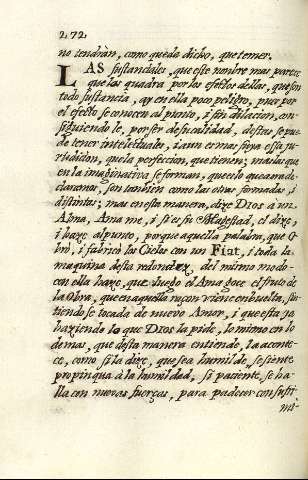 272
no tendràn, como queda dicho, que temer.
LAS sustanciales, que este nonbre mas parece
que las quadra por los efetos dellas, que son
todo sustancia, ay en ella poco peligro, pues por
el efeto se conocen al punto, i sin dilacion, con-
siguiendo le, por ser de su calidad, destas se pue
de tener intelectuales, i aun en mas suya esta ju-
risdicion, que la perfecion, que tienen; mas las que
en la imaginativa se forman, que es lo que anda de-
clarando, son tanbien como las otras formadas, i
distintas; mas en esta manera, dize Dios à un
Alma, Ama me, i si es su Magestad, el dize, i
i haze al punto, porque aquella palabra, que O-
brò, i fabricò los Cielos con un Fiat, i toda la
maquina desta redondez, del mismo modo
con ella haze, que luego el Alma goze el fruto de
la Obra, que en aquella razon viene enbuelta, sin-
tiendo se tocada de nuevo Amor, i que esta ja
haziendo lo que Dios la pide, lo mismo en lo
demas, que desta manera entiende, la aconte-
ce, como si la dize, que sea humilde, se siente
propinqua à la humildad, si paciente, se ha-
lla con nuevas fuerças, para padecer con sufri
mi-